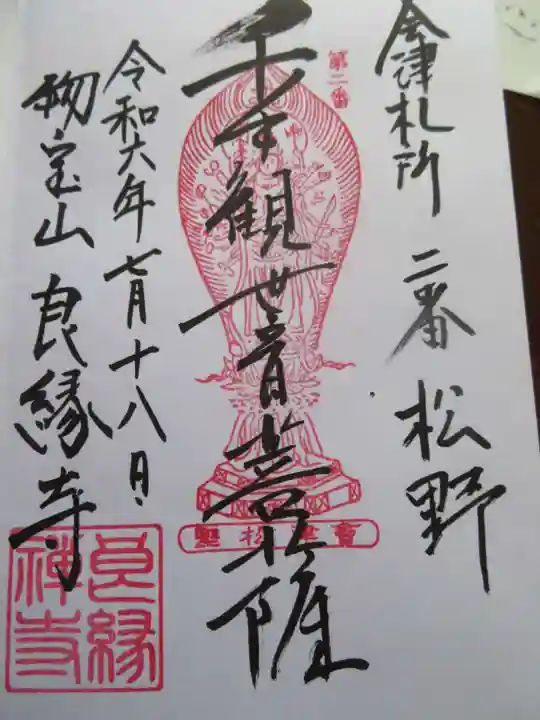 会津札所 二番 松野
第二番
千手観世音菩薩
令和六年七月十八日
物宝山 良縁寺
良縁
禅寺